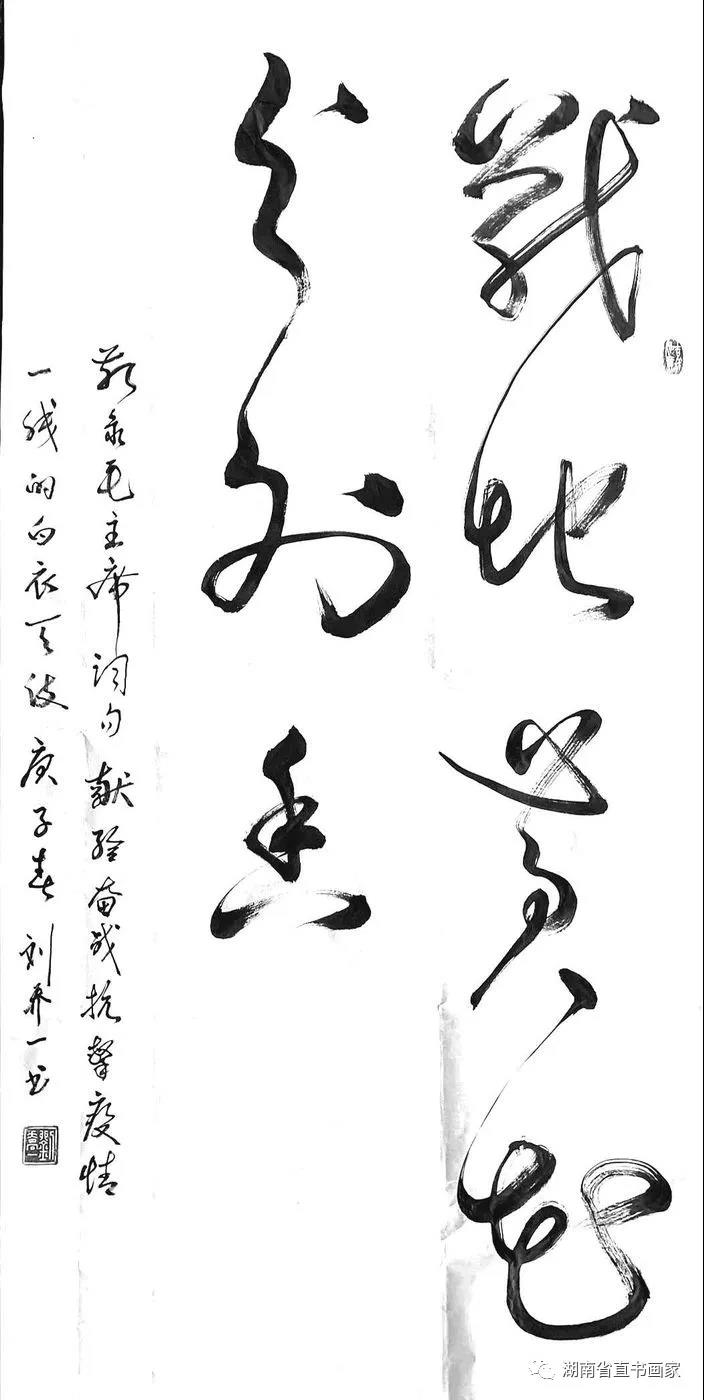 戰地黄花
分外香
敬录毛主席词句 献给奋战抗擊疫情
一线的白衣天使 庚子春 刘 一书
湖南省直书画家